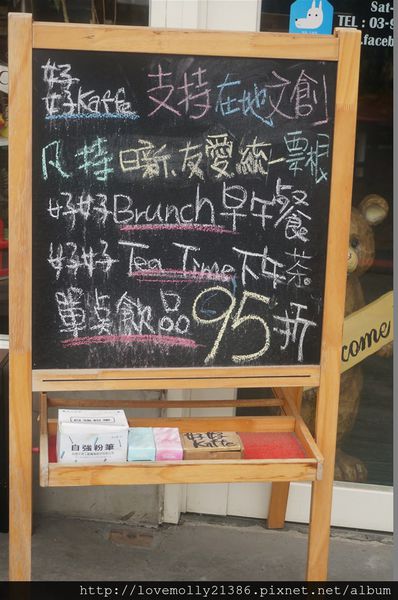 Sat-
TEL : 03-9
.faceb
好
好Kaffe 支持在地文創
凡持日新.友愛.統一票根
好好Brunch早午餐
好好Tea Time下午茶
單點飲品95折
come
自強粉筆
好好
Kaffe
http://lovemolly21386.pixnet.net/album